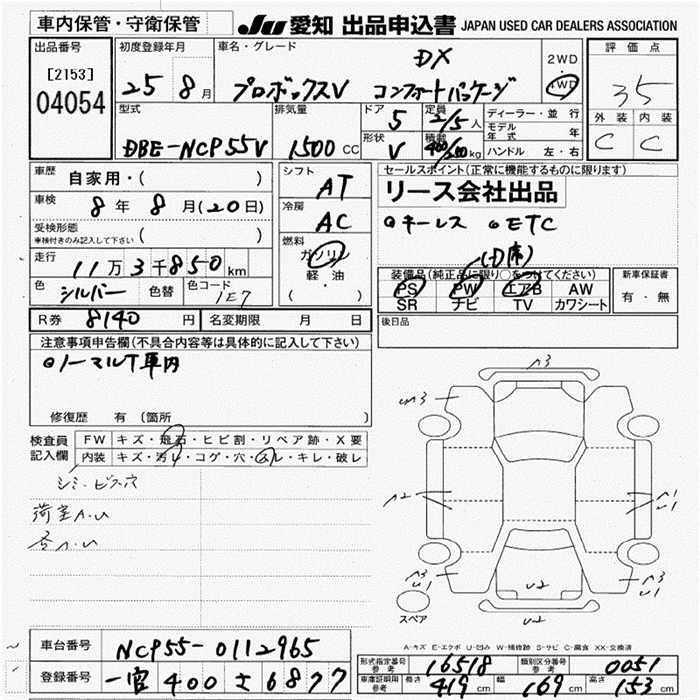 車内保管・守衛保管
JU 愛知 出品申込書 JAPAN USED CAR DEALERS ASSOCIATION
出品番号
[2153]
04054
初度登録年月
25 8月
車名・グレード
DX
プロボックスV コンフォートパッケージ
2WD
4WD
評価点
35
外装 内装
C C
型式
DBE-NCP55V
排気量
1500 CC
ドア
5
形状
V
定員
2/5人
積載
400/ kg
ディーラー・並行
モデル年式 年
ハンドル 左・右
車歴
自家用・( )
車検
8年 8月(20日)
受検形態
車検付きのみ記入して下さい ( )
走行
11万3千850km
色
シルバー 色替
色コード
1E7
シフト
AT
冷房
AC
燃料
ガソリン
軽油
( ・ )
セールスポイント(正常に機能するものに限ります)
リース会社出品
キーレス ETC
装備品(純正品に限り○をつけてください)
PS PW エアB AW
SR ナビ TV カワシート
新車保証書
有・無
R券 8140円 名変期限 月 日
後日品
注意事項申告欄(不具合内容等は具体的に記入して下さい)
ノーマルT車内
修復歴 有(箇所 )
検査員
記入欄
FW キズ・飛石・ヒビ割・リペア跡・X要
内装 キズ・汚レ・コゲ・穴・スレ・キレ・破レ
シミ・ビス穴
荷室A.U
A3
A2
U2
U2
スペア
A-キズ E-エクボ U-凹み W-補修跡 S-サビ C-腐食 XX-交換済
車台番号 NCP55-0112965
登録番号 一宮 400 さ 6877
形式指定番号 参考 16518 類別区分番号 参考 0051
車庫証明用 参考 長さ 419cm 幅 169cm 高さ 153cm